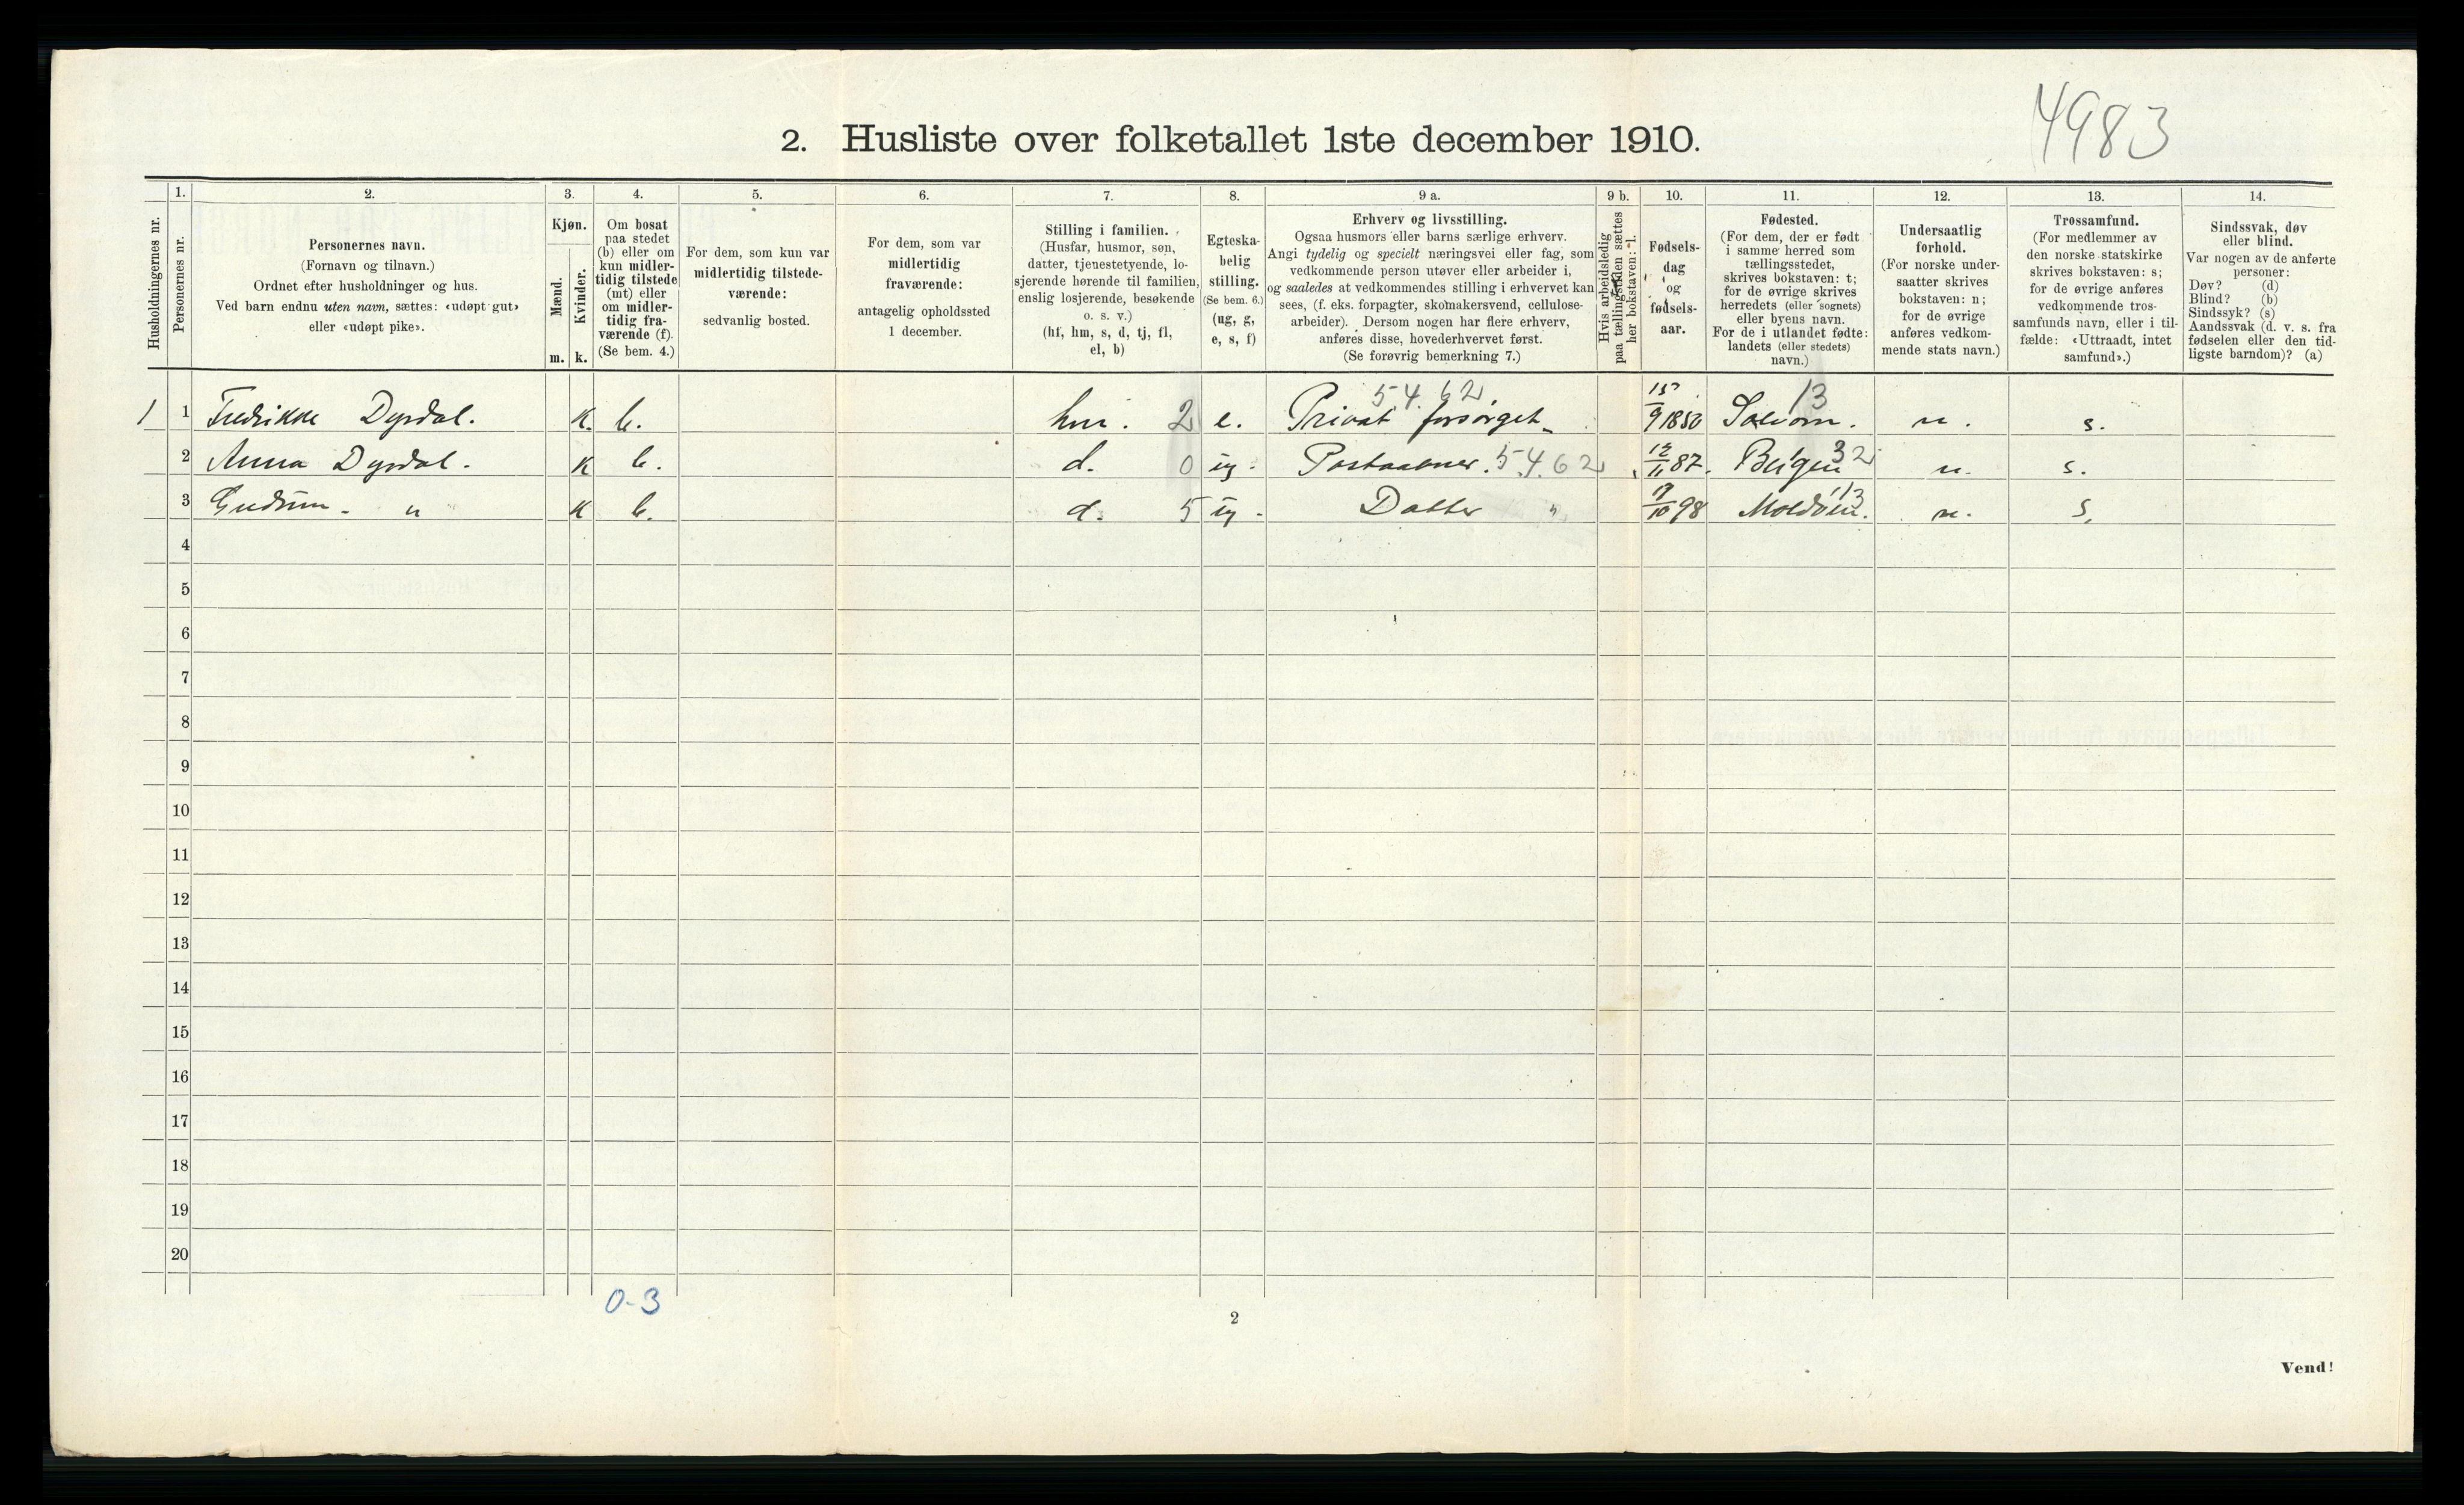 4983
2. Husliste over folketallet 1ste december 1910.
Husholdningernes nr.
1.
Personernes nr.
2.
Personernes navn.
(Fornavn og tilnavn.)
Ordnet efter husholdninger og hus.
Ved barn endnu uten navn, sættes: «udøpt gut»
eller «udøpt pike».
3.
Kjøn.
Mænd.
Kvinder.
m. k.
4.
Om bosat
paa stedet
(b) eller om
kun midler-
tidig tilstede
(mt) eller
om midler-
tidig fra-
værende (f).
(Se bem. 4.)
5.
For dem, som kun var
midlertidig tilstede-
værende:
sedvanlig bosted.
6.
For dem, som var
midlertidig
fraværende:
antagelig opholdssted
1 december.
7.
Stilling i familien.
(Husfar, husmor, søn,
datter, tjenestetyende, lo-
sjerende hørende til familien,
enslig losjerende, besøkende
o. s. v.)
(hf, hm, s, d, tj, fl,
el, b)
8.
Egteska-
belig
stilling.
(Se bem. 6.)
(ug, g,
e, s, f)
9 a.
Erhverv og livsstilling.
Ogsaa husmors eller barns særlige erhverv.
Angi tydelig og specielt næringsvei eller fag, som
vedkommende person utøver eller arbeider i,
og saaledes at vedkommendes stilling i erhvervet kan
sees, (f. eks. forpagter, skomakersvend, cellulose-
arbeider). Dersom nogen har flere erhverv,
anføres disse, hovederhvervet først.
(Se forøvrig bemerkning 7.)
9 b.
Hvis arbeidsledig
paa tællingstiden sættes
her bokstaven: l.
10.
Fødsels-
dag
og
fødsels-
aar.
11.
Fødested.
(For dem, der er født
i samme herred som
tællingsstedet,
skrives bokstaven: t;
for de øvrige skrives
herredets (eller sognets)
eller byens navn.
For de i utlandet fødte:
landets (eller stedets)
navn.)
12.
Undersaatlig
forhold.
(For norske under-
saatter skrives
bokstaven: n;
for de øvrige
anføres vedkom-
mende stats navn.)
13.
Trossamfund.
(For medlemmer av
den norske statskirke
skrives bokstaven: s;
for de øvrige anføres
vedkommende tros-
samfunds navn, eller i til-
fælde: «Uttraadt, intet
samfund».)
14.
Sindssvak, døv
eller blind.
Var nogen av de anførte
personer:
Døv? (d)
Blind? (b)
Sindssyk? (s)
Aandssvak (d. v. s. fra
fødselen eller den tid-
ligste barndom)? (a)
5.4.62 13
1 1 Fredrikke Dyrdal. K. b. hm. 2 e. Privat forsørget 15/9 1850 n. s.
2 Anna Dyrdal. K b. d. 0 ug. Postaabner. 5.4.62 12/11 87. Bergen 32 n. s.
3 Gudrun - " K b. d. 5 ug - Datter " 10 98 13 n. s.
4
5
6
7
8
9
10
11
12
13
14
15
16
17
18
19
20
0-3
2
Vend!